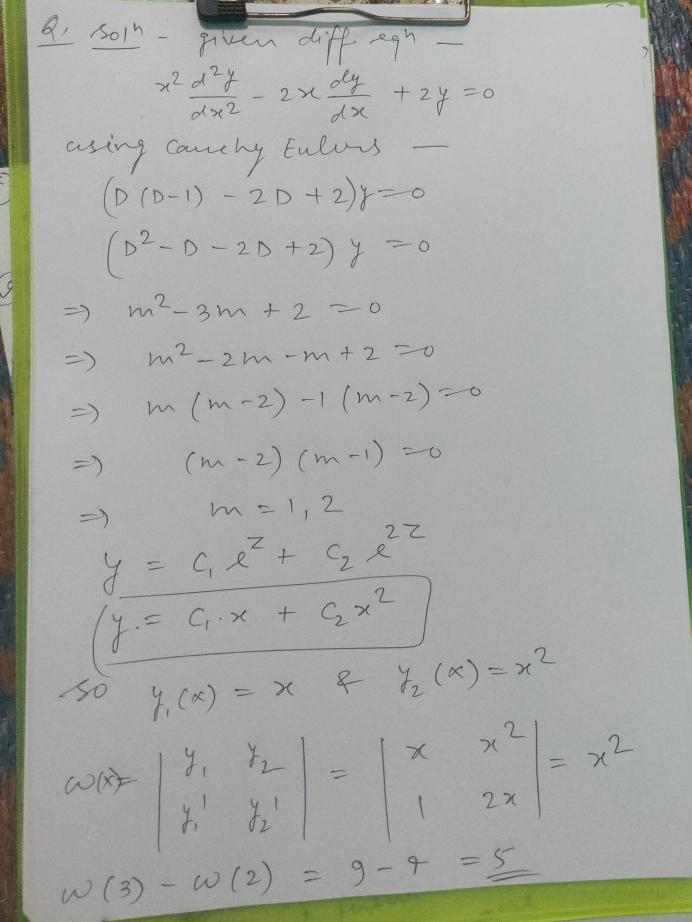 Q. Solⁿ - given diff eqⁿ —
x² d²y/dx² - 2x dy/dx + 2y = 0
using Cauchy Eulurs —
(D(D-1) - 2D + 2)y = 0
(D² - D - 2D + 2) y = 0
⇒ m² - 3m + 2 = 0
⇒ m² - 2m - m + 2 = 0
⇒ m(m-2) - 1(m-2) = 0
⇒ (m-2)(m-1) = 0
⇒ m = 1, 2
y = C₁e^z + C₂e^2z
y = C₁·x + C₂x²
so y₁(x) = x & y₂(x) = x²
w(x) = | y₁ y₂ | = | x x² | = x²
| y₁' y₂' | | 1 2x |
w(3) - w(2) = 9 - 4 = 5